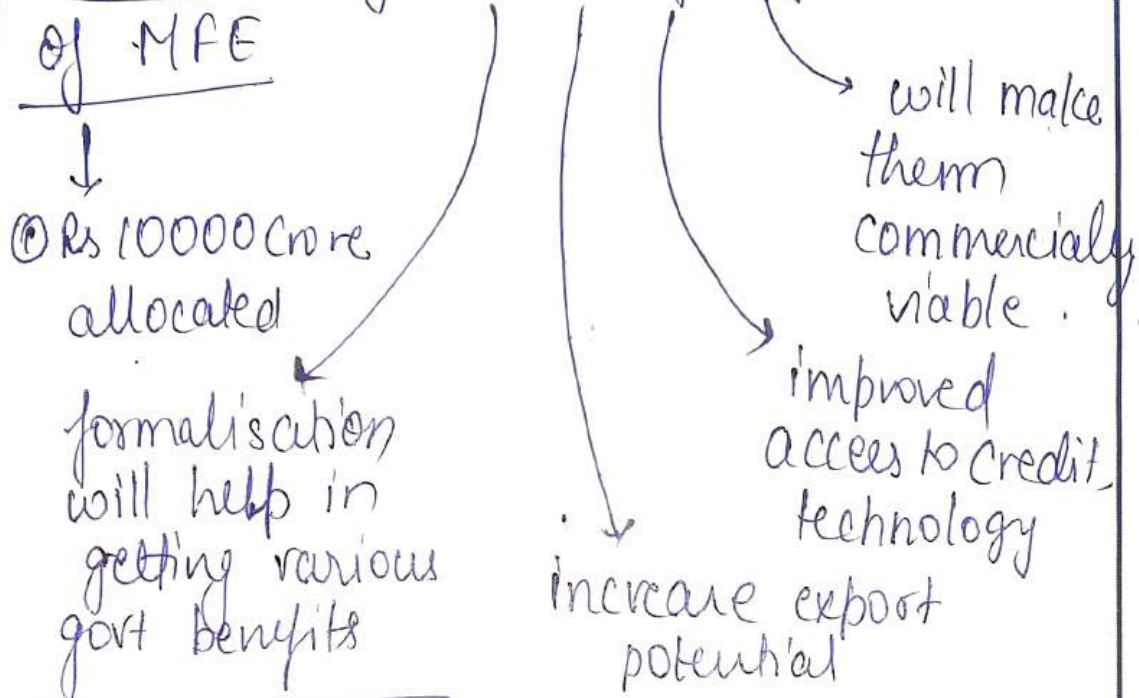 of MFE
① Rs 10000 Crore
allocated
formalisation
will help in
getting various
govt benefits
increase export
potential
improved
access to credit,
technology
will make
them
commercialy
viable.